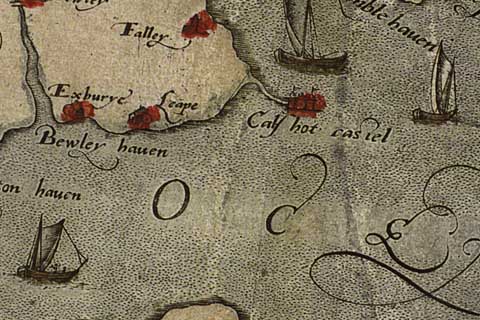 Falley
ble hauen
Exburye
Leape
Calshot castel
Bewley hauen
on hauen
O C E